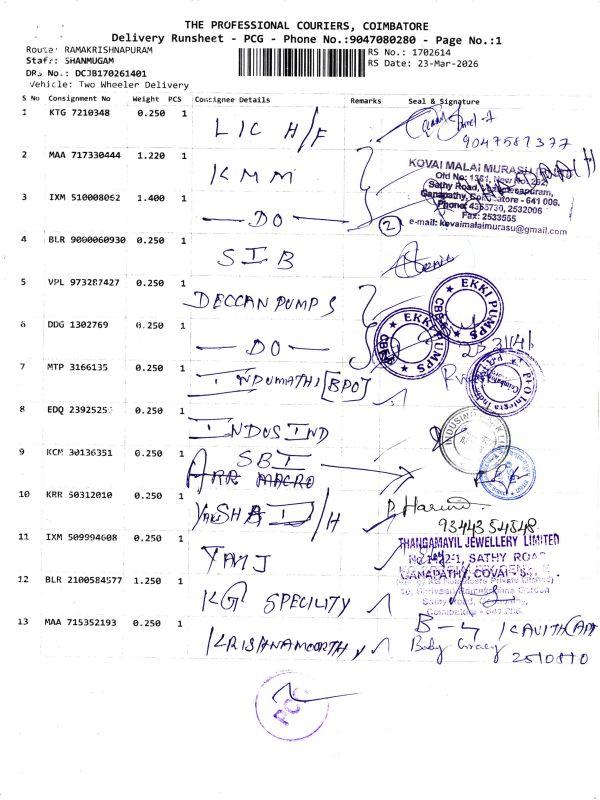 THE PROFESSIONAL COURIERS, COIMBATORE
Delivery Runsheet - PCG - Phone No.:9047080280 - Page No.:1
Route: RAMAKRISHNAPURAM
RS No.: 1702614
Staff: SHANMUGAM
RS Date: 23-Mar-2026
DRS No.: DCJB170261401
Vehicle: Two Wheeler Delivery
S No Consignment No Weight PCS Consignee Details Remarks Seal & Signature
1 KTG 7210348 0.250 1 LIC H/F
9047581377
2 MAA 717330444 1.220 1 KMM
KOVAI MALAI MURASU
Old No: 1361, New No: 252,
Sathy Road,
Ganapathy, Coimbatore - 641 006.
Phone: 4355730, 2532006
Fax: 2533555
e-mail: kovaimalaimurasu@gmail.com
3 IXM 510008062 1.400 1 —DO—
2
4 BLR 9000060930 0.250 1 SIB
5 VPL 973287427 0.250 1 DECCAN PUMPS
EKKI PUMPS
6 DDG 1302769 0.250 1 —DO—
EKKI PUMPS
7 MTP 3166135 0.250 1 INDUMATHI [BPO]
8 EDQ 23925253 0.250 1 INDUSIND
9 KCM 30136351 0.250 1 SBI
ARR MACRO
10 KRR 50312010 0.250 1 H
9344354848
11 IXM 509994608 0.250 1 TAMJ
THANGAMAYIL JEWELLERY LIMITED
SATHY ROAD
GANAPATHY, COVAI
12 BLR 2100584577 1.250 1 KG SPECILITY
13 MAA 715352193 0.250 1 KRISHNAMOORTHY
B-4
2510810
PCG